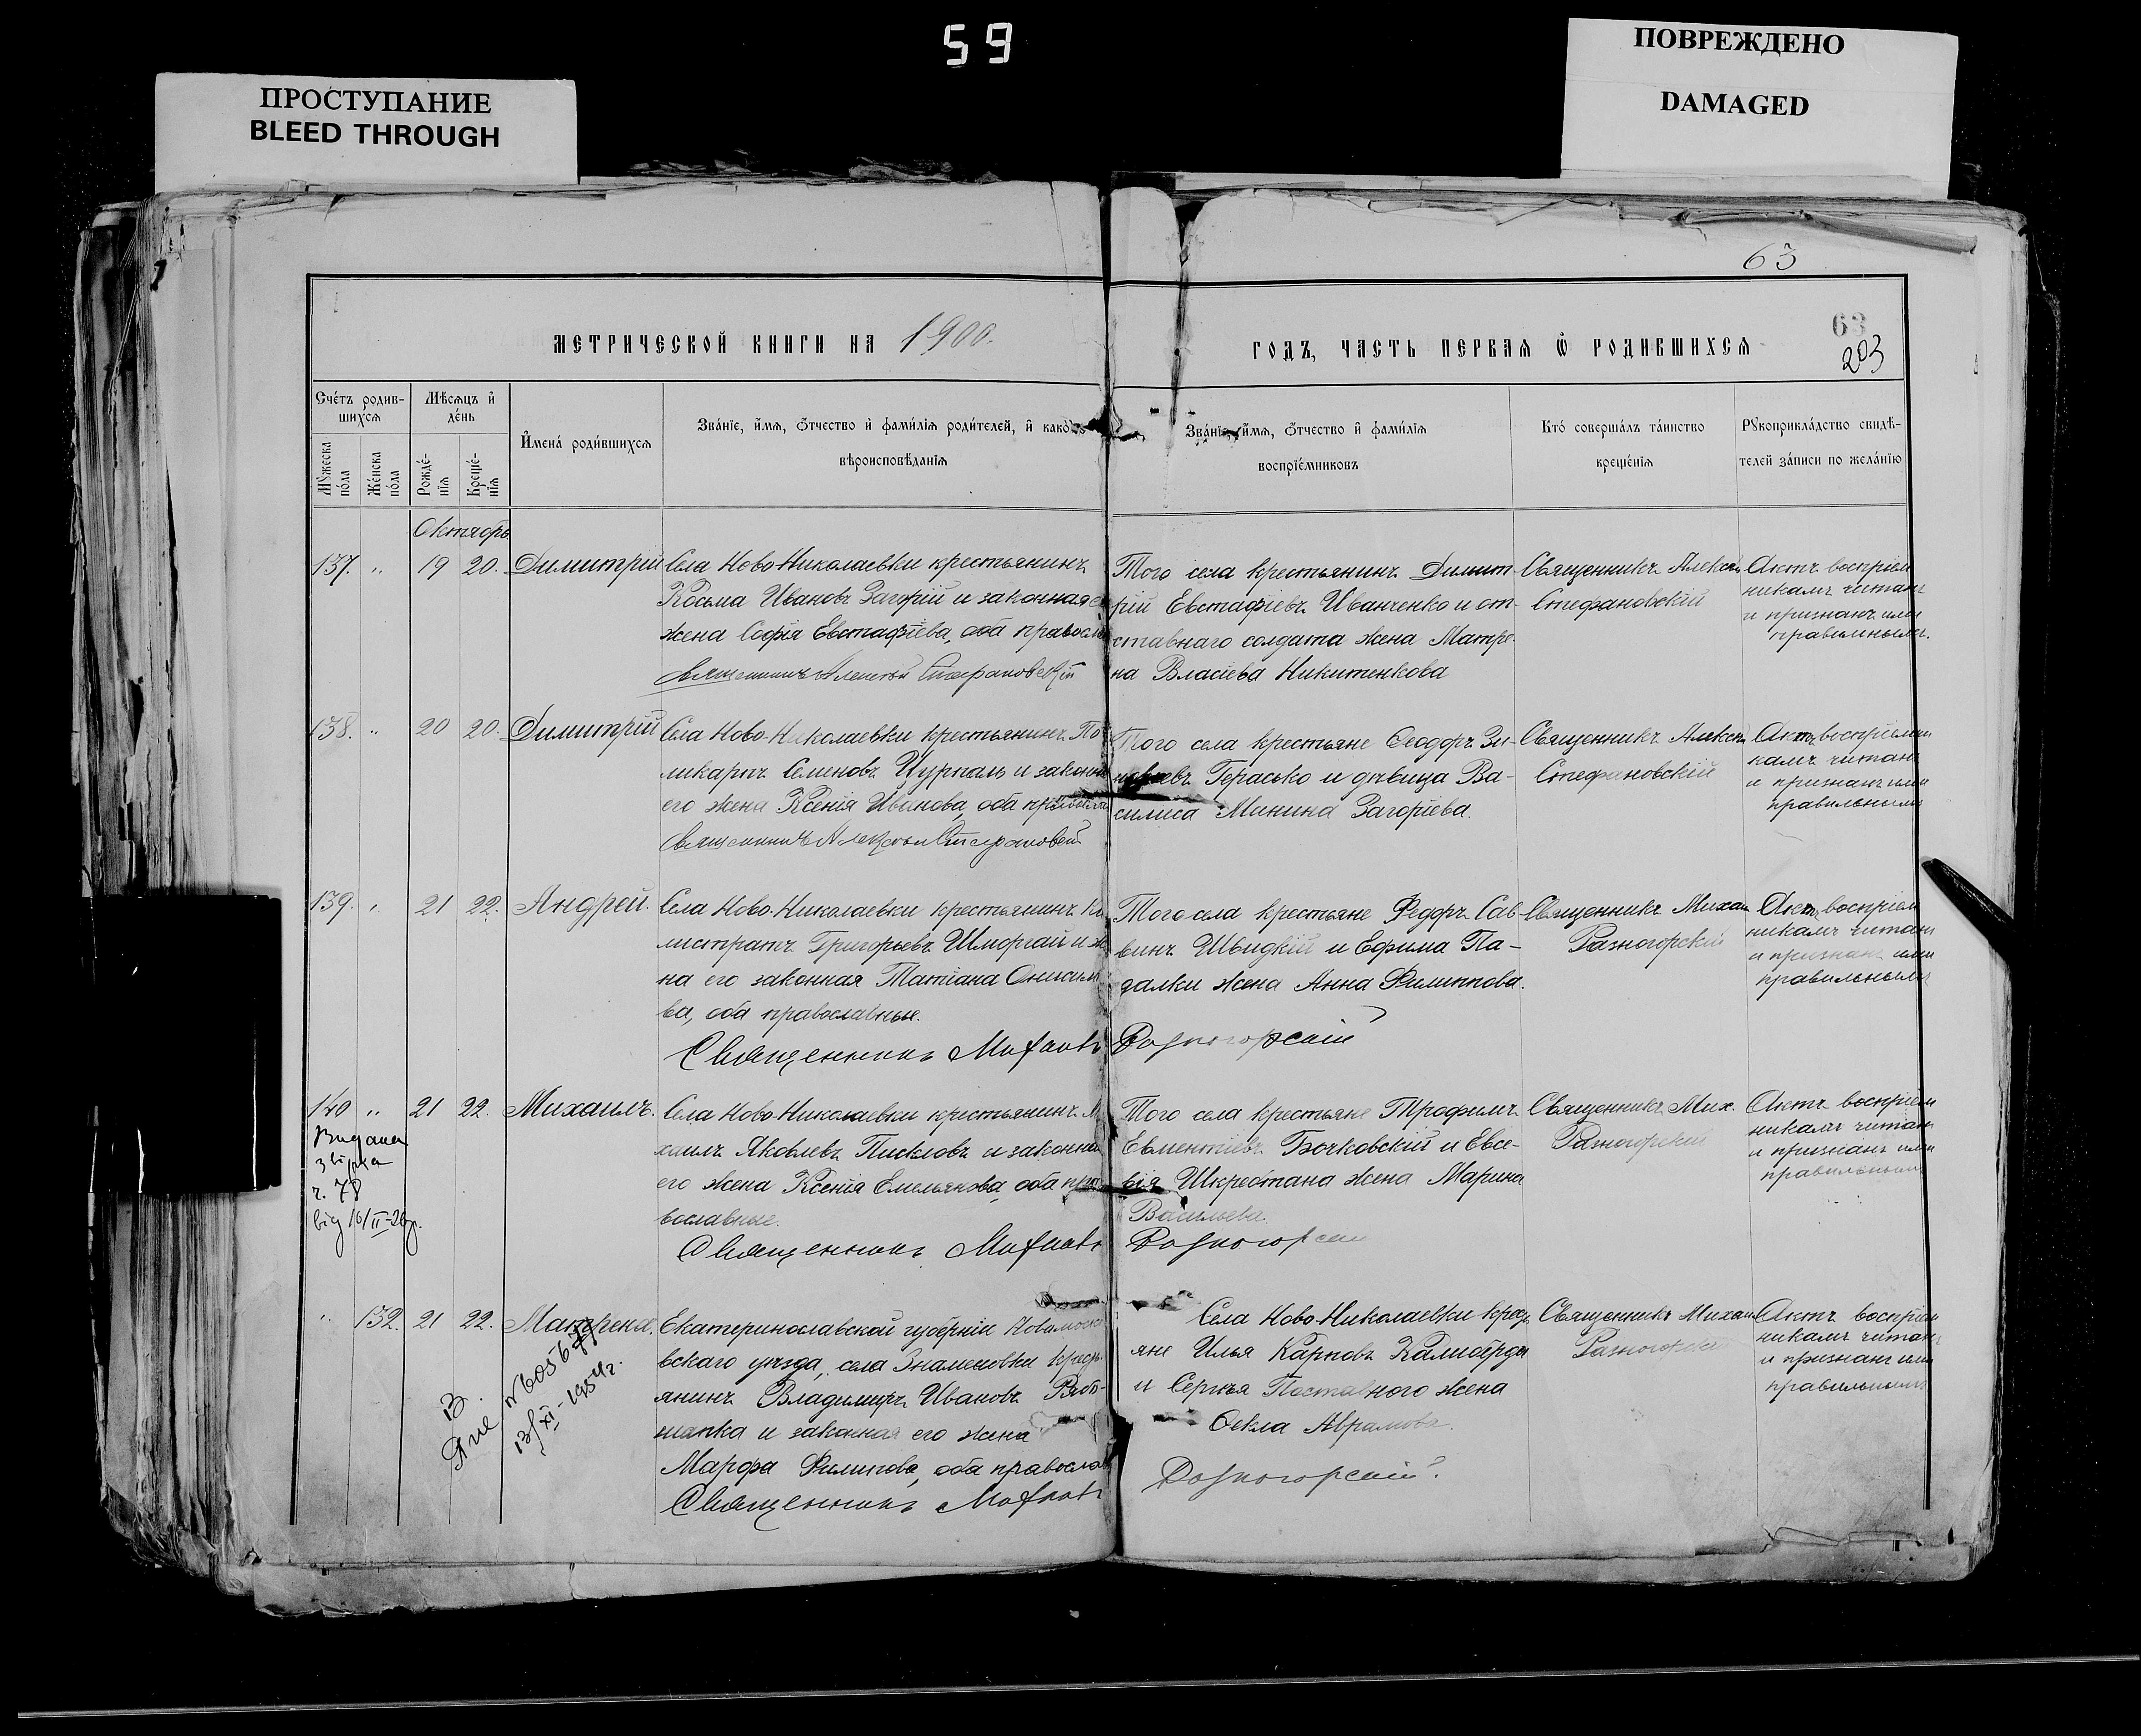 59
ПРОСТУПАНИЕ
BLEED THROUGH
ПОВРЕЖДЕНО
DAMAGED
63
МЕТРИЧЕСКОЙ КНИГИ НА 1900.
ГОДЪ, ЧАСТЬ ПЕРВАЯ Ѡ РОДИВШИХСЯ
63
203
Счетъ родив-
шихся
Мѣсяцъ и
день
Мужеска
пола
Женска
пола
Рожде-
нія
Креще-
нія
Имена родившихся
Званіе, имя, отчество и фамилія родителей, и какого
вѣроисповѣданія
Званіе, имя, отчество и фамилія
воспріемниковъ
Кто совершалъ таинство
крещенія
Рукоприкладство свидѣ-
телей записи по желанію
Октябрь
137. " 19 20. Димитрій
Села Ново-Николаевки крестьянинъ
Косьма Ивановъ Загорій и законная
жена Софія Евстафіева, оба правосл
Священникъ Алексѣй Стефановскій
Того села крестьянинъ Димит-
рій Евстафіевъ Иванченко и от-
ставнаго солдата жена Матро-
на Власіева Никитенкова
Священникъ Алексѣй
Стефановскій
Актъ воспріем
никамъ читанъ
и признанъ ими
правильнымъ.
138. " 20 20. Димитрій
Села Ново-Николаевки крестьянинъ По
ликарпъ Семеновъ Цурпаль и законн
его жена Ксенія Иванова, оба правосла
Священникъ Алексѣй Стефановскій
Того села крестьяне Ѳеодоръ Зи-
Герасько и дѣвица Ва-
силиса Минина Загоріева.
Священникъ Алексѣй
Стефановскій
Актъ воспріемни
камъ читанъ
и признанъ ими
правильнымъ
139. " 21 22. Андрей.
Села Ново-Николаевки крестьянинъ Ка
листратъ Григорьевъ Шморгай и же
на его законная Татіана Онисимо
ва, оба православные.
Священникъ Михаилъ Разногорскій
Того села крестьяне Федоръ Сав-
винъ Швидкій и Ефима Па-
далки жена Анна Филиппова.
Священникъ Михаи
Разногорскій
Актъ воспріем
никамъ читанъ
и признанъ ими
правильнымъ
140 " 21 22. Михаилъ.
Видана
ч. 78
від 16/II-26р.
Села Ново-Николаевки крестьянинъ М
хаилъ Яковлевъ Писковъ и законная
его жена Ксенія Емельянова, оба пра
вославные.
Священникъ Михаилъ Разногорскій
Того села крестьяне Трофимъ
Евментіевъ Бочковскій и Евсе-
вія Шкреботана жена Марина
Васильева.
Священникъ Мих.
Разногорскій
Актъ воспріем
никамъ читанъ
и признанъ ими
правильнымъ
" 132. 21 22. Матрена.
13/XI-1954г.
Екатеринославской губерніи Новомоско
вскаго уѣзда, села Знаменовки кресть
янинъ Владимиръ Ивановъ Рябо-
шапка и законная его жена
Марфа Филипова, оба правосла
Священникъ Михаилъ Разногорскій.
Села Ново-Николаевки кресть
яне Илья Карповъ Калиберда
и Сергѣя Поставного жена
Ѳекла Абрамова.
Священникъ Михаилъ
Разногорскій
Актъ воспріем
никамъ читанъ
и признанъ ими
правильнымъ